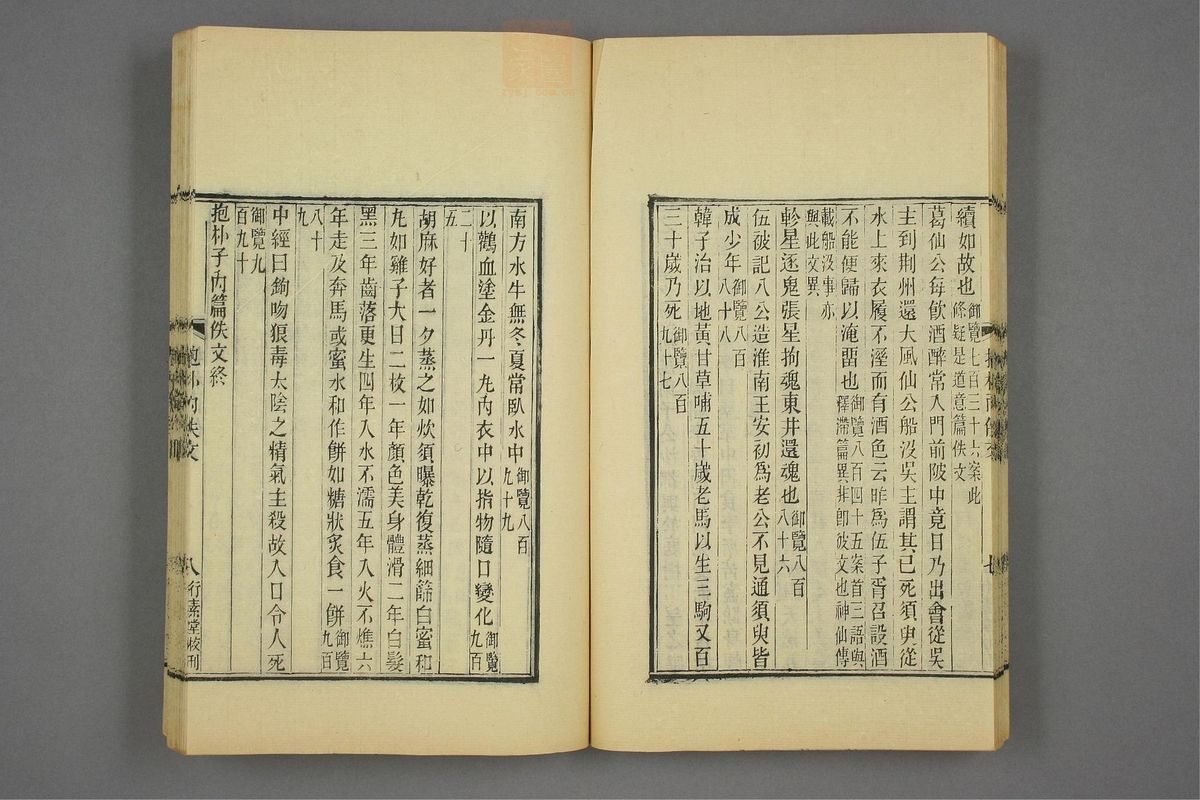 續如故也御覽七百三十六案此條疑是道意篇佚文
葛仙公每飮酒醉常入門前陂中竟日乃出會從吳
主到荆州還大風仙公船没吳主謂其已死須臾從
水上來衣履不溼而有酒色云昨爲伍子胥召設酒
不能便歸以淹畱也御覽八百四十五案首三語與釋滯篇異非卽彼文也神仙傳
載船没事亦與此文異
軫星逐鬼張星拘魂東井還魂也御覽八百八十六
伍被記八公造淮南王安初爲老公不見通須臾皆
成少年御覽八百八十八
韓子治以地黃甘草哺五十歲老馬以生三駒又百
三十歲乃死御覽八百九十七
南方水牛無冬夏常臥水中御覽八百九十九
以鸛血塗金丹一丸內衣中以指物隨口變化御覽九百
二十五
胡麻好者一夕蒸之如炊須曝乾復蒸細篩白蜜和
丸如雞子大日二枚一年顏色美身體滑二年白髮
黑三年齒落更生四年入水不濡五年入火不燋六
年走及奔馬或蜜水和作餠如糖狀炙食一餠御覽九百
八十九
中經曰鉤吻狼毒太陰之精氣主殺故入口令人死
御覽九百九十
抱朴子內篇佚文終
抱朴內佚文
八
行素堂校刊
七